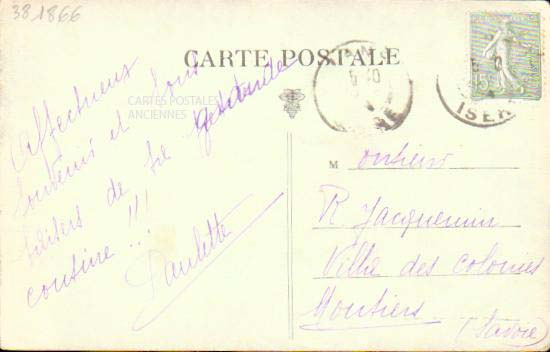 38 1866
CARTE POSTALE
ISER
15c
CARTES POSTALES
ANCIENNES
Affectueux
souvenir et bons
baisers de la grande
cousine !!!
Paulette
Monsieur
R Jacquemin
Villa des colonies
Moutiers
(Savoie)